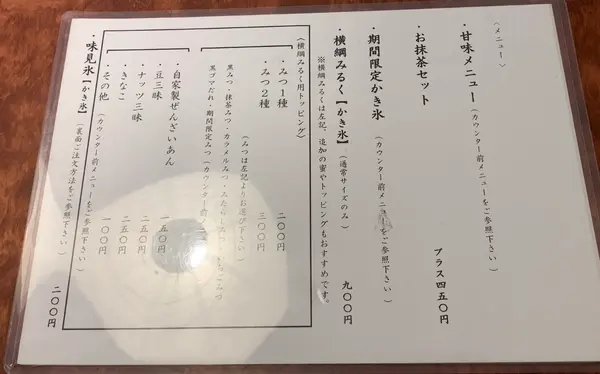 〈メニュー〉
・甘味メニュー（カウンター前メニューをご参照下さい）
・お抹茶セット プラス四五〇円
・期間限定かき氷（カウンター前メニューをご参照下さい）
・横綱みるく【かき氷】（通常サイズのみ） 九〇〇円
※横綱みるくは左記、追加の蜜やトッピングもおすすめです。
〈横綱みるく用トッピング〉
・みつ１種 二〇〇円
・みつ２種 三〇〇円
（みつは左記よりお選び下さい）
黒みつ・抹茶みつ・カラメルみつ・みたらしみつ・
黒ゴマだれ・期間限定みつ（カウンター前
・自家製ぜんざいあん 一五〇円
・豆三昧 二五〇円
・ナッツ三昧 二五〇円
・きなこ 一〇〇円
・その他（カウンター前メニューをご参照下さい）
・味見氷【かき氷】（裏面ご注文方法をご参照下さい） 二〇〇円